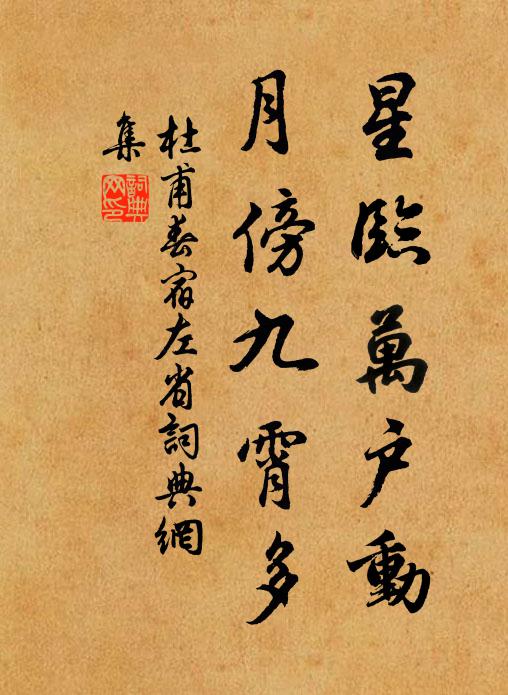 星臨萬戶動
月傍九霄多
杜甫春宿左省詞典網
集
詞典
网印